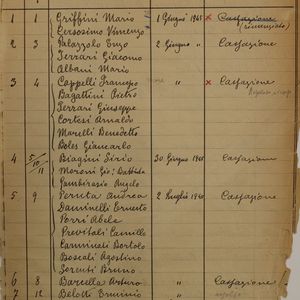 1 1 Griffini Mario 1 Giugno 1945 x Cassazione
Cersosimo Vincenzo (rinunziato)
2 3 Palazzolo Enzo 2 Giugno " Cassazione
Ferrari Giacomo
Albani Mario
3 4 Cappelli Francesco " x Cassazione
Bagattini Pietro
Ferrari Giuseppe
Cortesi Arnaldo
Marelli Benedetto
Boles Giancarlo
4 5/10/11 Biagini Sirio 30 Giugno 1945 Cassazione
Moroni Gio: Battista
Gambirasio Angelo
5 9 Peruta Andrea 2 Luglio 1945 Cassazione
Daminelli Ernesto
Porri Abele
Previtali Camillo
Caminati Bortolo
Boscali Agostino
Serenti Bruno
6 8 Barcella Arturo " " Cassazione
7 12 Belotti Erminio " "